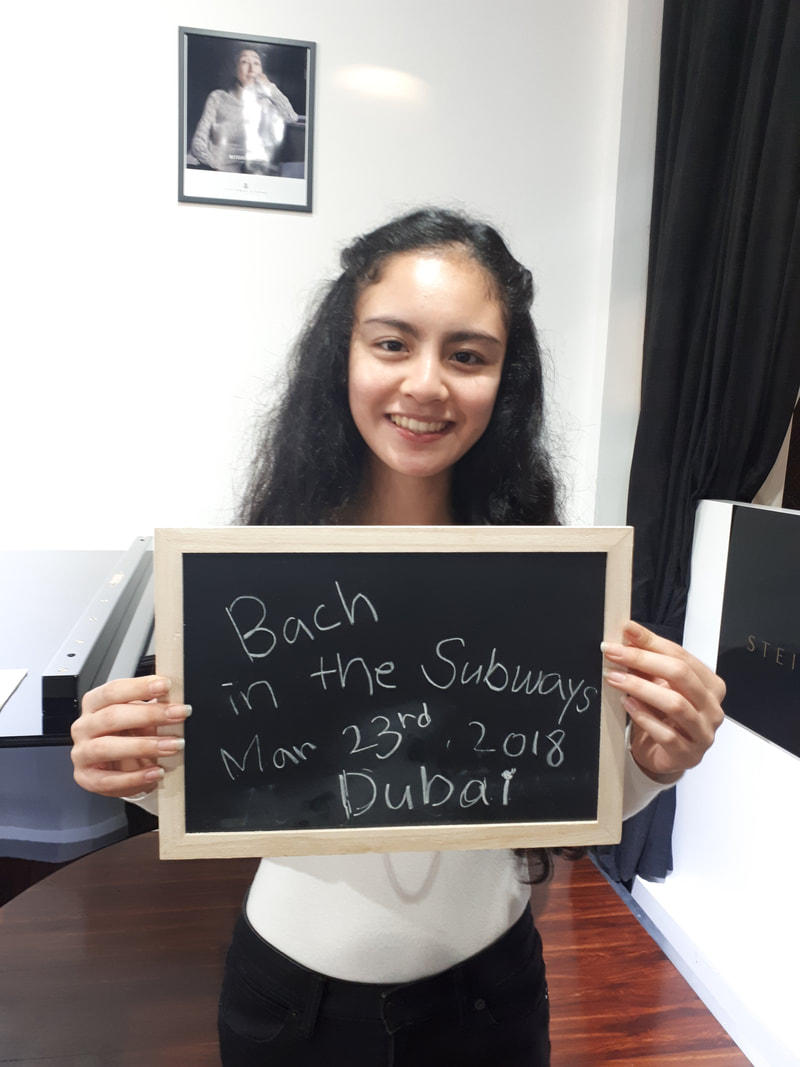 Bach
in the Subways
Mar 23rd, 2018
Dubai
STEI